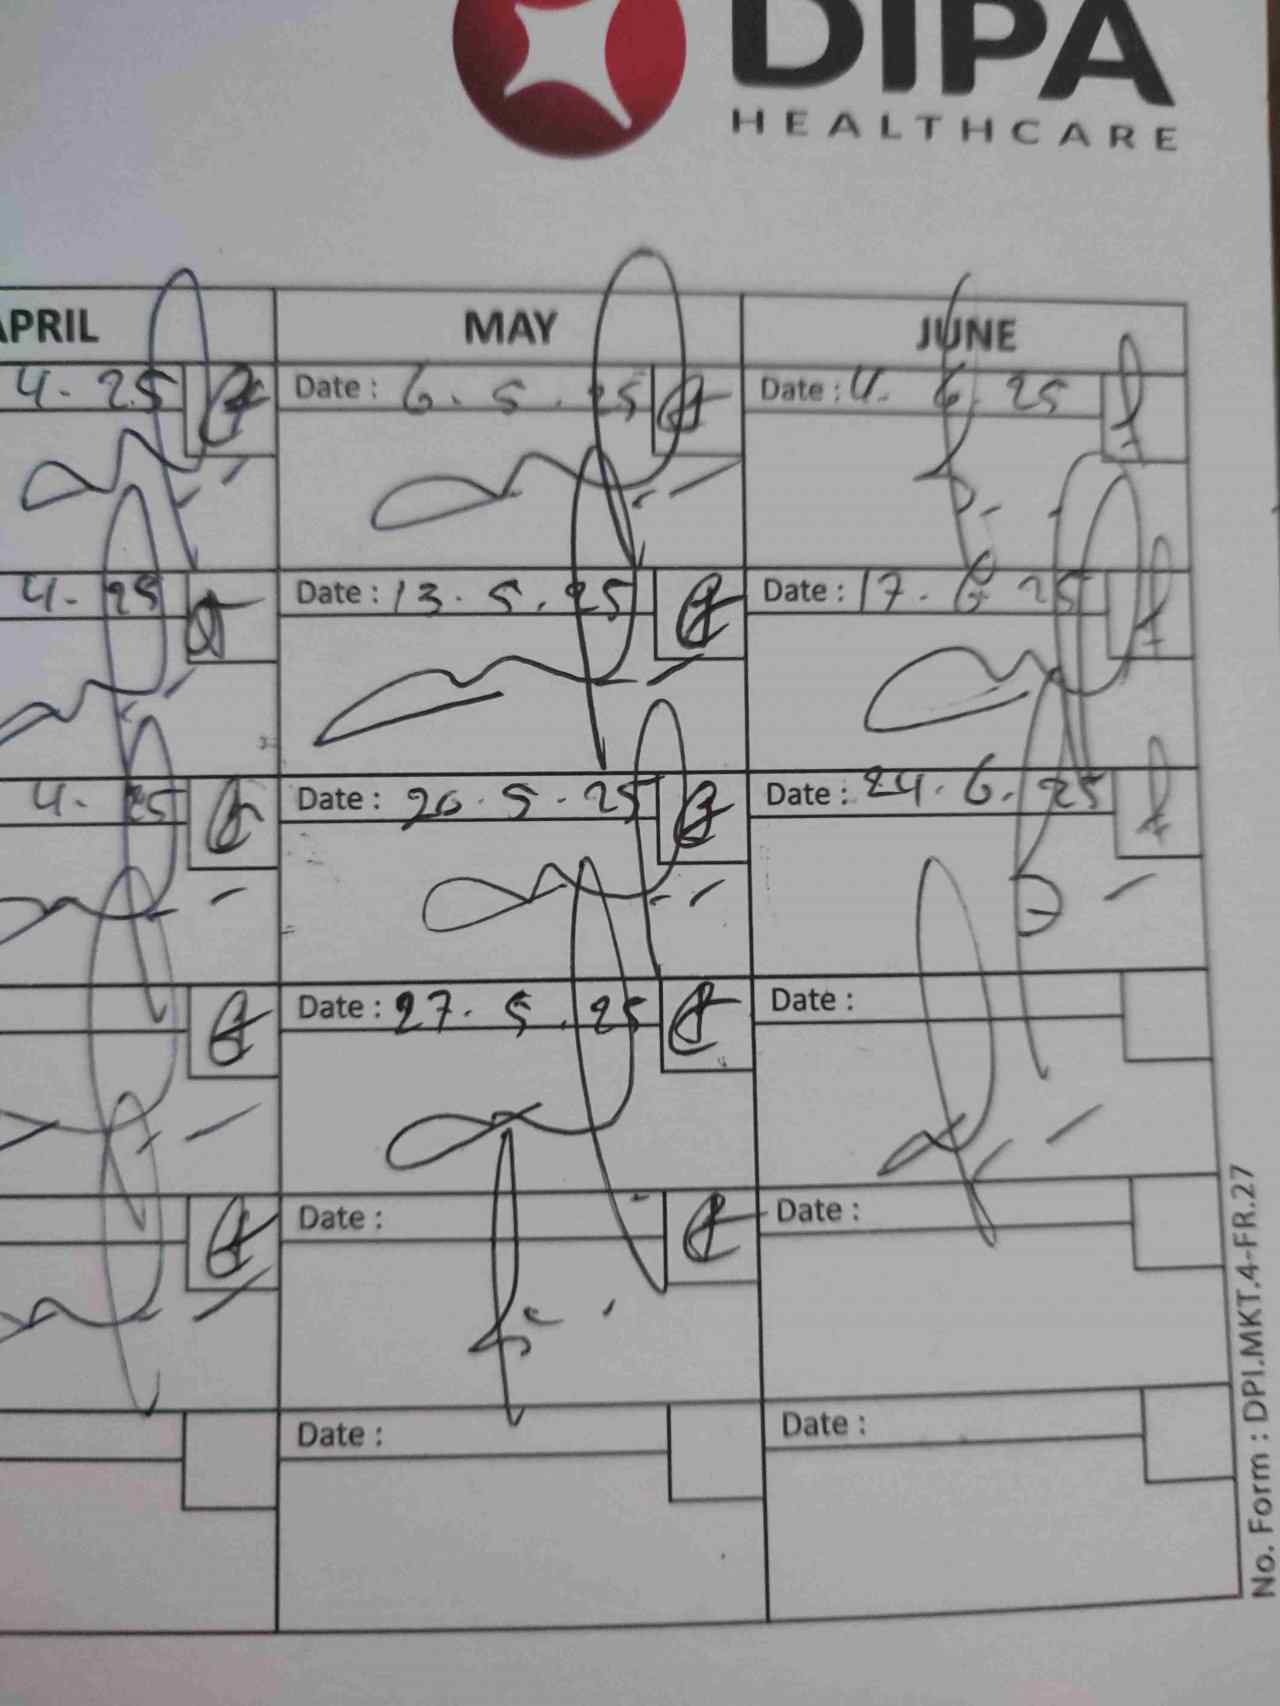 DIPA
HEALTHCARE
APRIL MAY JUNE
4. 25 Date : 6. 5. 25 Date : 4. 6. 25
4. 25 Date : 13. 5. 25 Date : 17. 6. 25
4. 25 Date : 20. 5. 25 Date : 24. 6. 25
Date : 27. 5. 25 Date :
Date : Date :
Date : Date :
No. Form : DPI.MKT.4-FR.27